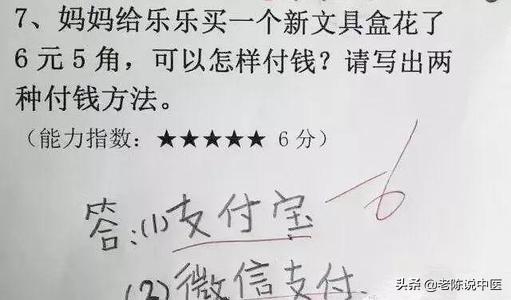 7、妈妈给乐乐买一个新文具盒花了
6元5角，可以怎样付钱？请写出两
种付钱方法。
（能力指数：★★★★★ 6分）
-6
答：(1)支付宝
(2)微信支付.
头条 @老陈说中医